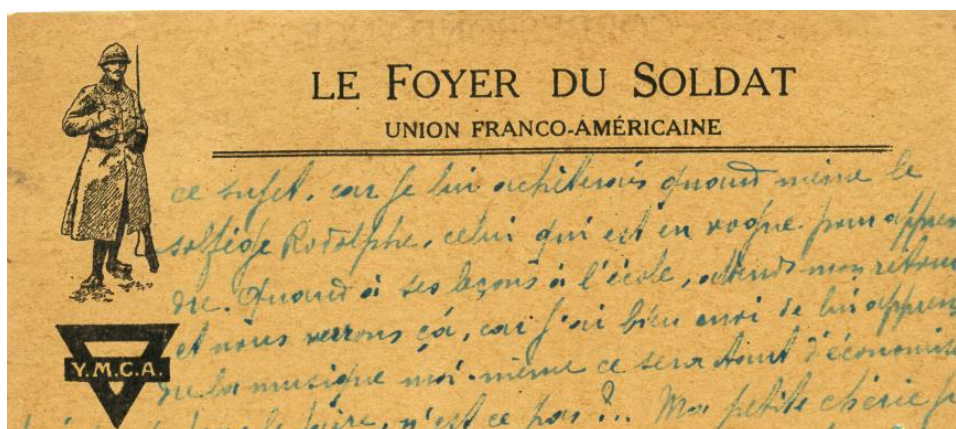 LE FOYER DU SOLDAT
UNION FRANCO-AMÉRICAINE
ce sujet, car je lui achèterais quand même le
solfège Rodolphe, celui qui est en vogue pour appren
dre. Quand à ses leçons à l'école, attends mon retour
et nous verrons çà, car j'ai bien envi de lui appren
Y.M.C.A.
dre la musique moi-même ce sera tout d'économise
faire, n'est ce pas ?.. Ma petite chérie